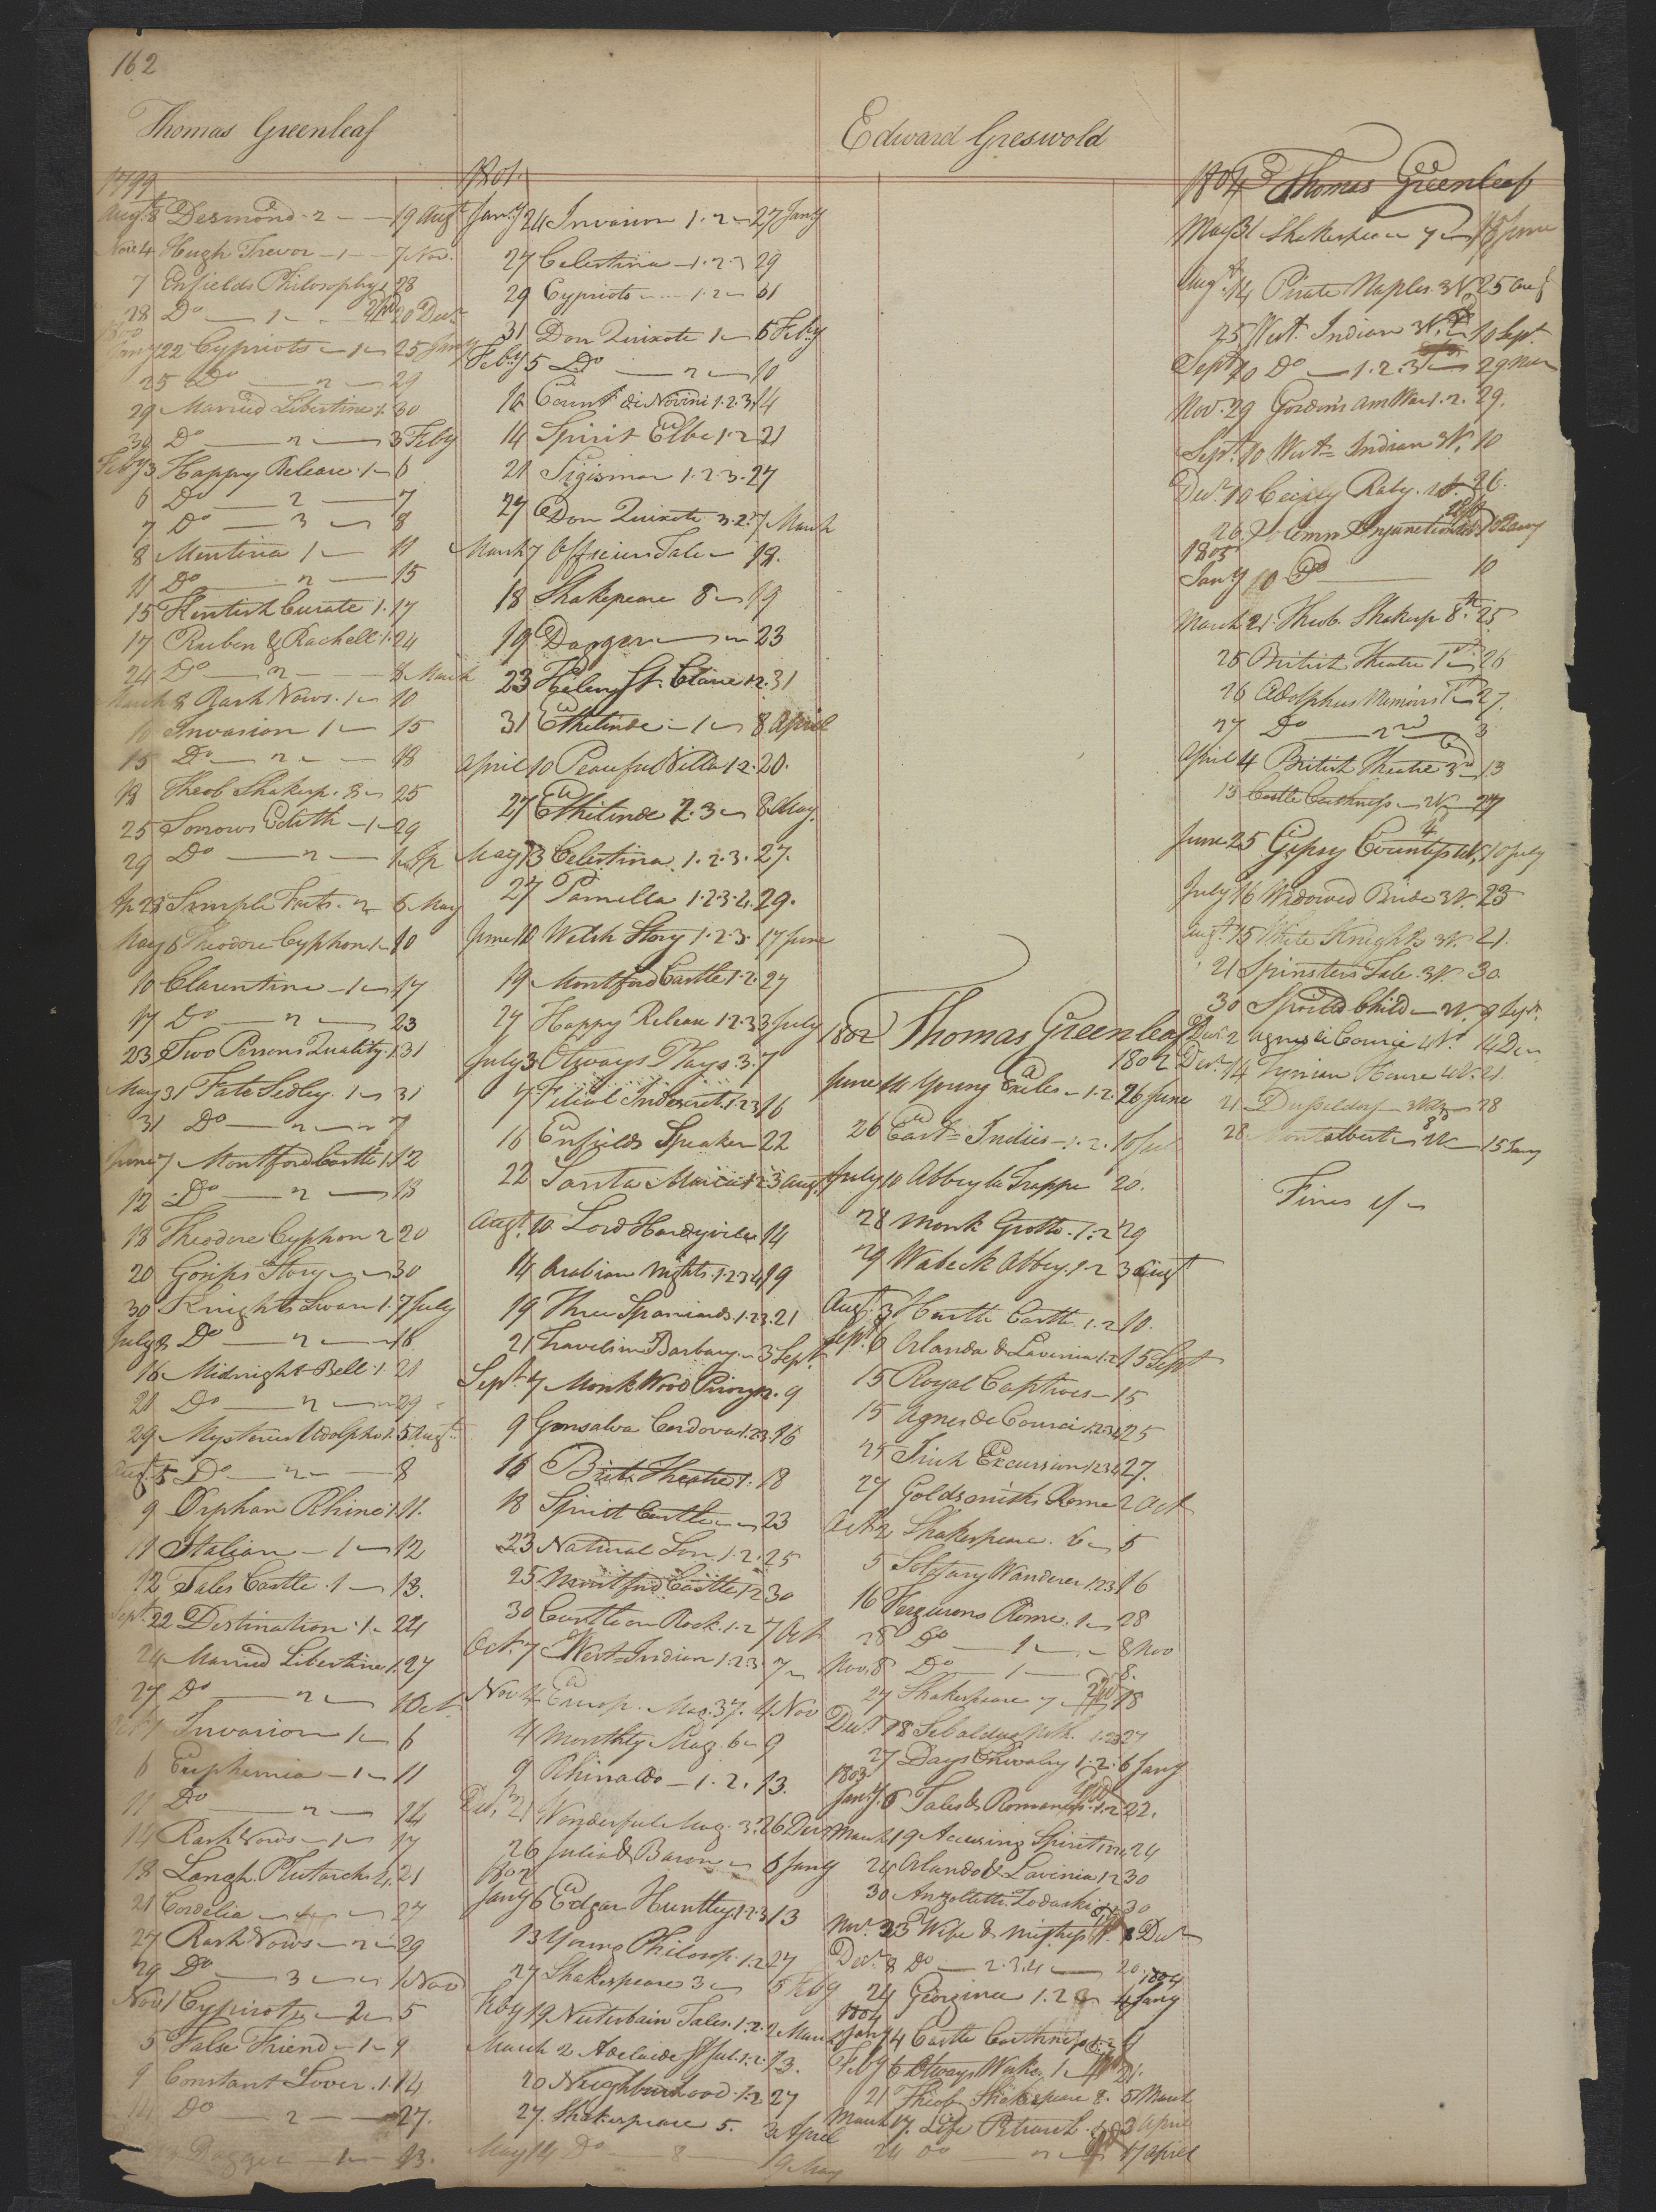 162
Thomas Greenleaf
1799
Augt 8 Desmond - 2 - 19 Augt
Nov 4 Hugh Trevor - 1 - 7 Nov.
7 Enfields Philosophy 28
28 Do - 1 - 20 Decr
1800
Jany 22 Cypriots - 1 - 25 Jany
25 Do - 2 - 29
29 Married Libertine 1. 30
30 Do - 2 - 3 Feby
Feby 3 Happy Release. 1 - 6
6 Do - 2 - 7
7 Do - 3 - 8
8 Mentoria 1 - 11
11 Do - 2 - 15
15 Kentish Curate 1. 17
17 Reuben & Rachell. 1. 24
24 Do - 2 - 8 March
March 8 Rash Vows. 1 - 10
10 Invasion 1 - 15
15 Do - 2 - 18
18 Theob Shakesp. 8 - 25
25 Sorrows Edith - 1 - 29
29 Do - 2 - 1 Ap
Ap 28 Simple Facts. 2 6 May
May 6 Theodore Cyphon 1 - 10
10 Clarentine - 1 - 17
17 Do - 2 - 23
23 Two Persons Quality. 1 31
May 31 Fate Sedley. 1 - 31
31 Do - 2 - 7
June 7 Montford Castle 1. 12
12 Do - 2 - 13
13 Theodore Cyphon 2 20
20 Gosips Story - 30
30 Knights Swan 1. 7 July
July 8 Do - 2 - 16
16 Midnight Bell. 1 21
21 Do - 2 - 29
29 Mysteries Udolpho 1. 5 Augt
Augt 5 Do - 2 - 8
9 Orphan Rhine 1. 11.
11 Italian - 1 - 12
12 Tales Castle. 1 - 13.
Sept 22 Destination. 1 - 24
24 Married Libertine 1. 27
27 Do - 2 - 1 Oct
Oct 1 Invasion 1 - 6
6 Euphemia - 1 - 11
11 Do - 2 - 14
14 Rash Vows - 1 - 17
18 Langh. Plutarch 4. 21
21 Cordelia - 27
27 Rash Vows - 2 - 29
29 Do - 3 - 1 Nov
Nov 1 Cypriots - 2 - 5
5 False Friend - 1 - 9
9 Constant Lover. 1. 14
14 Do - 2 - 27.
Dagger - 1 - 13.
1801.
Jany 24 Invasion 1. 2 - 27 Jany
27 Celestina - 1. 2. 3 29
29 Cypriots - 1. 2 - 31
31 Don Quixote 1 - 5 Feby
Feby 5 Do - 2 - 10
10 Count di Novini 1. 2. 3. 14
14 Spirit Elbe 1. 2 21
21 Sigismar 1. 2. 3. 27
27 Don Quixote 3. 2. 7 March
March 7 Officers Tale - 18.
18 Shakepeare 8 - 19
19 Dagger - 23
23 Helen St. Clare 1. 2. 31
31 Ethelinde - 1 - 8 April
April 10 Peaceful Villa 1. 2. 20.
27 Ethelinde 2. 3 - 8 May.
May 13 Celestina. 1. 2. 3. 27.
27 Pamella 1. 2. 3. 4. 29.
June 10 Welsh Story 1. 2. 3. 17 June
19 Montford Castle 1. 2. 27
27 Happy Release 1. 2. 3 3 July
July 3 Otways Plays. 3. 7
7 Filial Indiscret. 1. 2. 3 16
16 Enfields Speaker 22
22 Santa Maria 1. 2 3 Augt
Augt 10. Lord Hardyville 14
14 Arabian Nights. 1. 2 3 4 19
19 Three Spaniards. 1. 2. 3. 21
21 Travels in Barbary. - 3 Sept
Sept 7 Monk Wood Priory 1. 2. 9
9 Gonsalva Cordova 1. 2. 3. 16
16 Brit. Theatre 1. 18
18 Spirit Castle - 23
23 Natural Son. 1. 2. 25
25. Montford Castle 1. 2 30
30 Castle on Rock. 1. 2 7 Oct
Oct. 7 West = Indian 1. 2. 3. 7
Nov 4 Europ. Mag. 37. 4 Nov
4 Monthly Mag. 6 - 9
9 Rhinaldo - 1. 2. 13.
Decr 21 Wonderful Mag. 3. 26 Decr
26 Julia & Baron - 6 Jany
1802
Jany 6 Edgar Huntley. 1. 2. 3 13
13 Young Philosop. 1. 2 27
27 Shakespeare 3 - 5 Feby
Feby 19 Tales. 1. 2. 2 March
March 2 Adelaide St Jul. 1. 2. 13.
20 Neighbourhood. 1. 2 27
27. Shakespeare 5. 3 April
May 14 Do - 8 - 19 May
Edward Greswold
1802 Thomas Greenleaf
1802
June 14 Young Exiles - 1. 2. 26 June
26 East = Indies - 1. 2. 10 Jul
July 10 Abbey la Trappe 20.
28 Monk Grotto. 1. 2 29
29 Wabeck Abbey. 1. 2 3 Augt
Augt 3 Castle. 1. 2 10.
Sept. 6 Orlando & Lavinia 1. 2. 15 Sept
15 Royal Captives - 15
15 Agnes de Courci 1. 2. 3. 4 25
25 Irish Excursion 1. 2 3 4 27.
27 Goldsmiths Rome 2 Oct
Oct 2 Shakespeare. 6 - 5
5 Solitary Wanderer 1. 2 3 16
16 Fergusons Rome. 1 - 28
28 Do - 1 - 8 Nov
Nov. 8 Do - 1 - 8.
27 Shakespeare 7 18
Decr 18 Sebaldus Noth. 1. 2. 3 27
27 Days Chivalry 1. 2. 6 Jany
1803
Jany. 6 Tales & Romances. 1. 2 22.
March 19 Accusing Spirit 24
24 Orlando & Lavinia 1. 2 30
30 Anzoletta Zadoski 30
Nov. 23 Wife & Mistress 8 Decr
Decr 8 Do - 2. 3. 4 - 20.
1804
24 Georgina 1. 2 - 4 Jany
1804
Jany 4 Castle Caithness 9
Feby 6 Otways Works. 1 - 21.
21 Theob. Shakespeare 8. 5 March
March 17. Life Petrarch. 1. 3 April
24 Do - 2 - 17 April
1804 Thomas Greenleaf
May 31 Shakespeare 7 - 18 June
Augt 14 Pirate Naples. 3 V. 25 Aug
25 West. Indian 3 V. 10 Sept.
Sept 10 Do - 1. 2. 3 - 29 Nov
Nov. 29 Gordon's Am War 1. 2. 29.
Sept. 10 West = Indian 3 V. 10
Decr 10 Cecily Raby. 26.
26 10 Jany
1805
Jany 10 Do - 10
March 21 Theob. Shakesp 8th. 25.
25 British Theatre 1st - 26
26 Adolphus Memoirs 1st - 27.
27 Do - 2nd 3
April 4 British Theatre 3d - 13
13 Castle Caithness - 2 V. - 27
June 25 Gipsy Countess 4 V. 10 July
July 16 Widowed Bride 3 V. 23
Augt. 15 White Knights 3 V. 21.
21 Spinsters Tale. 3 V. 30.
30 Spoiled Child - 2 V. 9 Sepr.
Decr. 2 Agnes de Courci 4 V. 14 Decr
Decr. 14 Tynian House 4 V. 21.
21 Dusseldorf - 3 V. - 28
28 Montalbert - 3 V. - 15 Jany
Fines